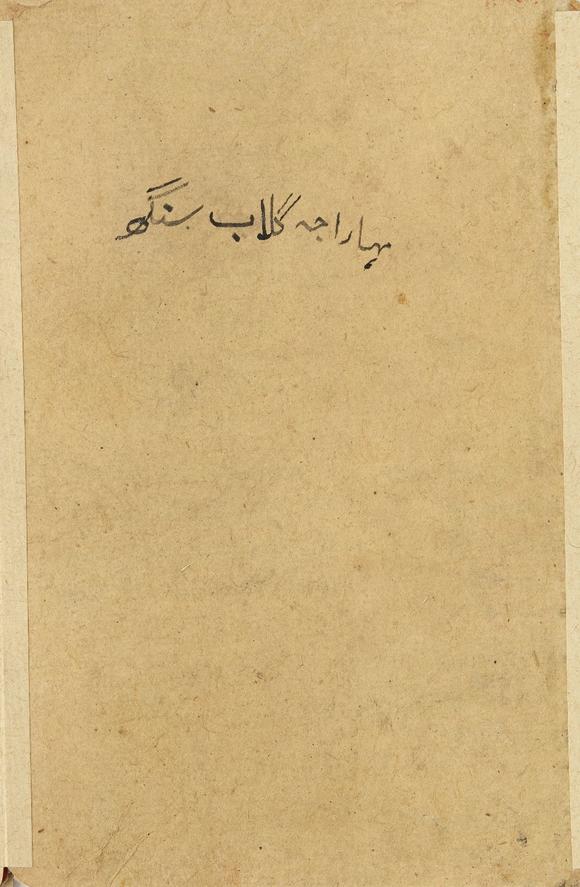 مہاراجہ گلاب سنگھ